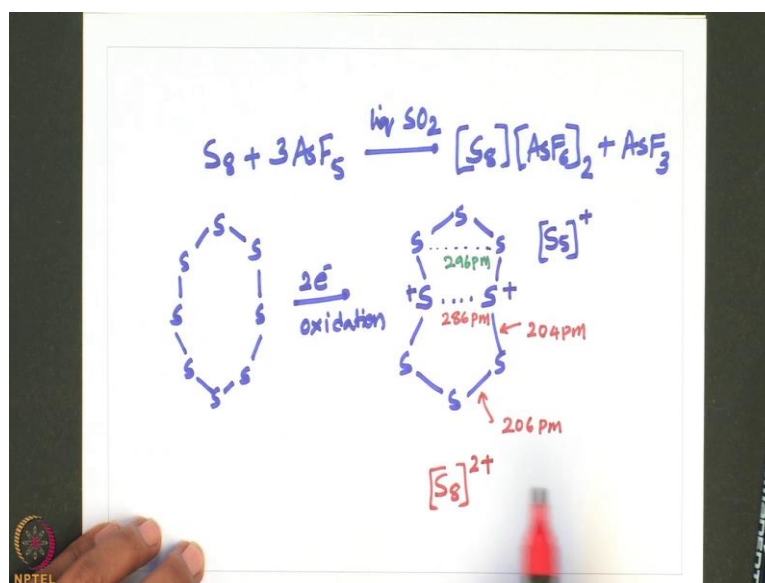 S8 + 3AsF5 liq SO2 → [S8][AsF6]2 + AsF3
S
S S
S S
S S
S
2e-
oxidation
S
S S
296pm
+S .... S+
286pm
S S
S
204pm
206 pm
[S5]+
[S8]2+
NPTEL